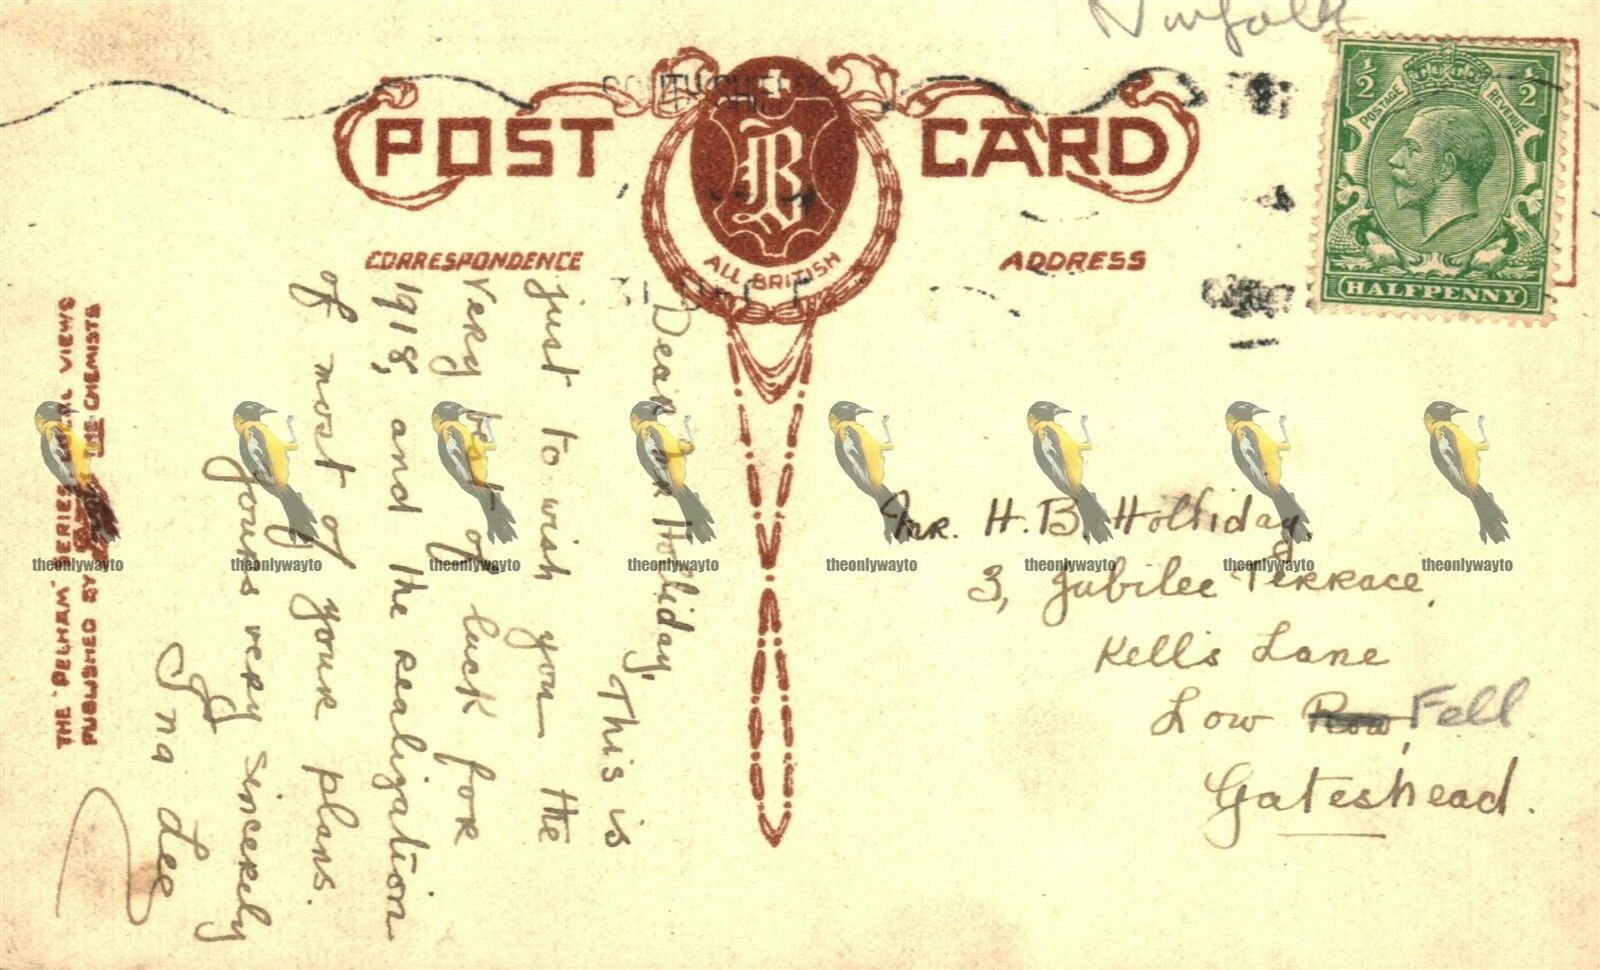 Norfolk
POST CARD
B
ALL BRITISH
CORRESPONDENCE
ADDRESS
1/2 1/2
POSTAGE REVENUE
HALFPENNY
Dear Mr Holliday,
This is
just to wish you the
very best of luck for
1918, and the realization
of most of your plans.
Yours very sincerely
Ina Lee
Mr. H. B. Holliday,
3, Jubilee Terrace,
Kells Lane
Low Row, Fell
Gateshead.
THE "PELHAM" SERIES LOCAL VIEWS
PUBLISHED BY THE CHEMISTS
theonlywayto theonlywayto theonlywayto theonlywayto theonlywayto theonlywayto theonlywayto theonlywayto